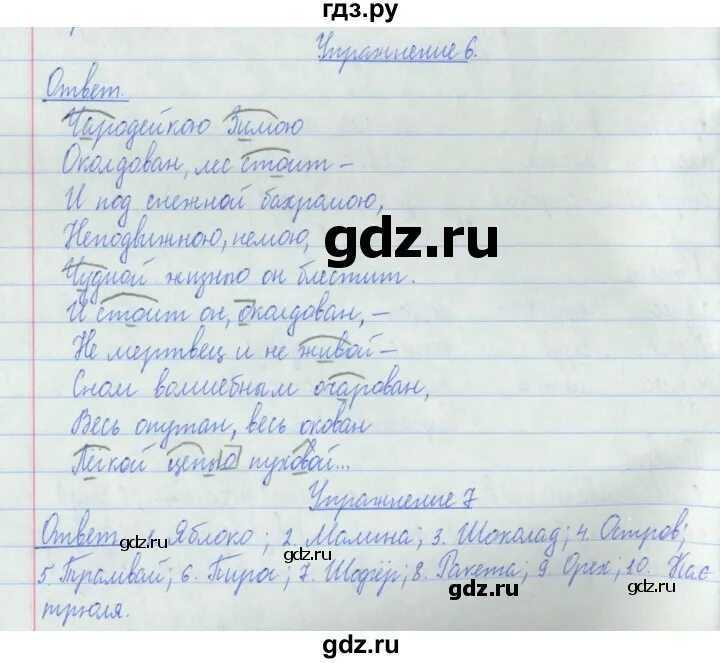 гдз.ру
Упражнение 6.
Ответ.
Чародейкою Зимою
Околдован, лес стоит –
И под снежной бахрамою,
Неподвижною, немою,
gdz.ru
Чудной жизнью он блестит.
И стоит он, околдован, –
Не мертвец и не живой –
Сном волшебным очарован,
Весь опутан, весь окован
Легкой цепью пуховой...
Упражнение 7
Ответ. 1. Яблоко; 2. Малина; 3. Шоколад; 4. Остров;
gdz.ru gdz.ru
5. Трамвай; 6. Пирог; 7. Шофёр; 8. Ракета; 9. Орех; 10. Кас
gdz.ru
трюля.
gdz.ru